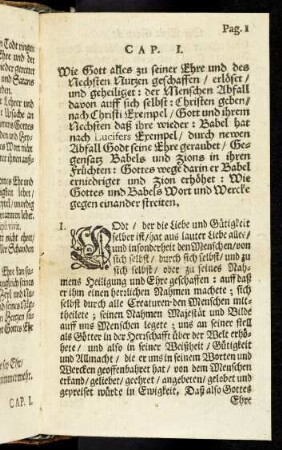 Pag. 1
CAP. I.
Wie Gott alles zu seiner Ehre und des
Nechsten Nutzen geschaffen / erlöset /
und geheiliget: der Menschen Abfall
davon auff sich selbst: Christen geben /
nach Christi Exempel / Gott und ihrem
Nechsten daß ihre wieder: Babel hat
nach Lucifers Exempel / durch newen
Abfall Godt seine Ehre geraubet / Ge-
gensatz Babels und Zions in ihren
Früchten: Gottes wege darin er Babel
erniedriget und Zion erhöhet: Wie
Gottes und Babels Wort und Wercke
gegen einander streiten.
1. GOdt / der die Liebe und Gütigkeit
selber ist / hat aus lauter Liebe alles /
und insonderheit den Menschen / von
sich selbst / durch sich selbst / und zu
sich selbst / oder zu seines Nah-
mens Heiligung und Ehre geschaffen: auff daß
er ihm einen herrlichen Nahmen machete; sich
selbst durch alle Creaturen den Menschen mit-
theilete; seinen Nahmen Majestät und Bilde
auff uns Menschen legete; uns an seiner stell
als Götter in der Herrschafft über der Welt erhö-
hete / und also in seiner Weißheit / Gütigkeit
und Allmacht / die er uns in seinem Worten und
Wercken geoffenbahret hat / von dem Menschen
erkand / geliebet / geehret / angebeten / gelobet und
gepreiset würde in Ewigkeit. Daß also Gottes
Ehre
CAP. I.